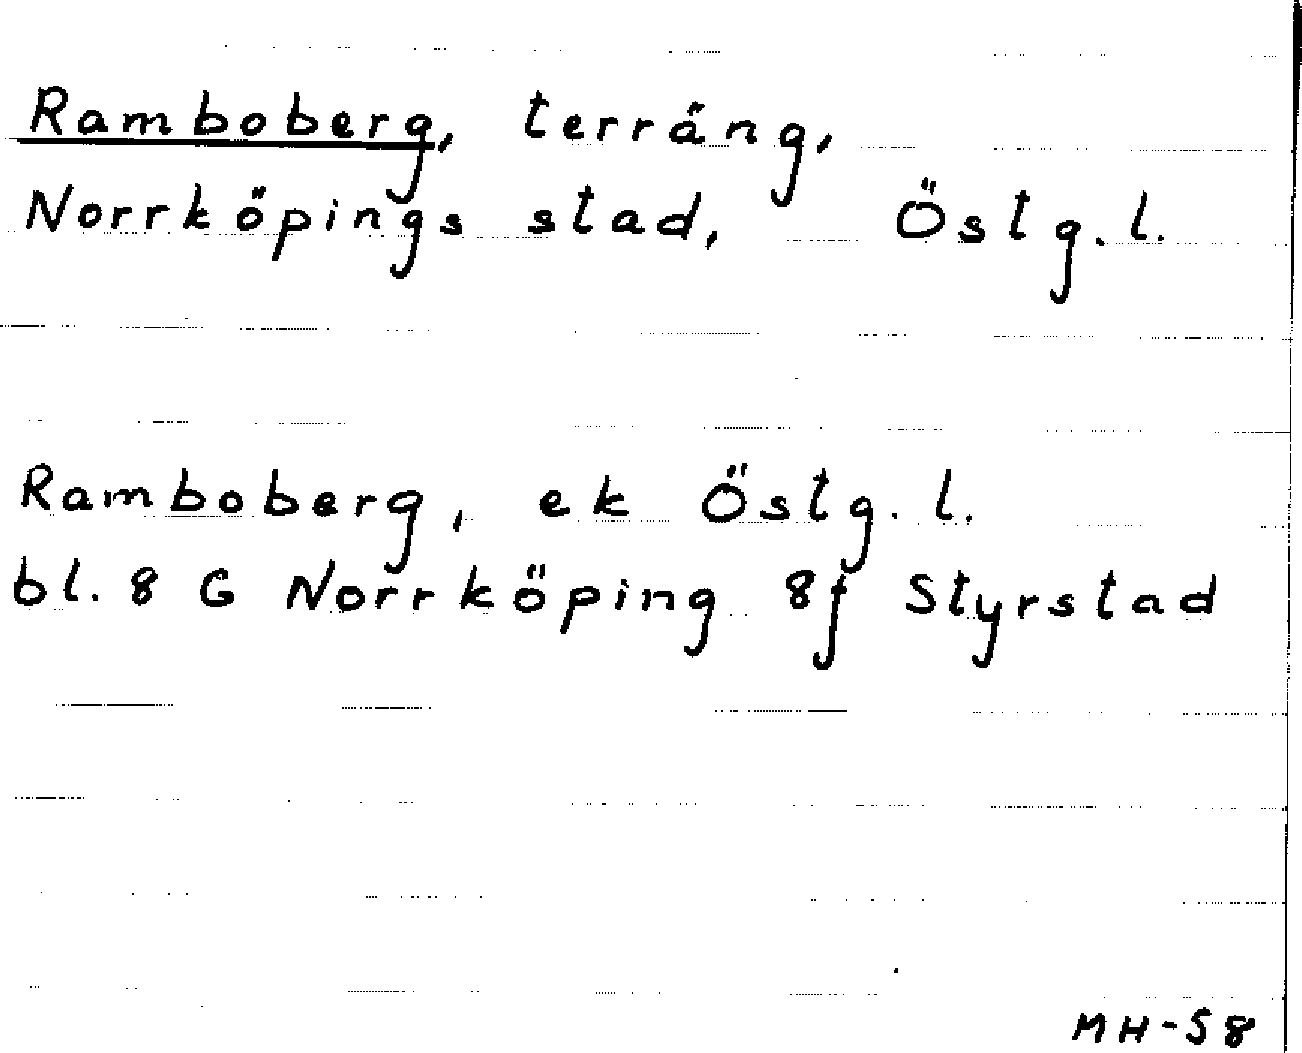 Ramboberg, terräng,
Norrköpings stad, Östg.l.
Ramboberg, ek Östg.l.
bl. 8 G Norrköping 8f Styrstad
MH-58